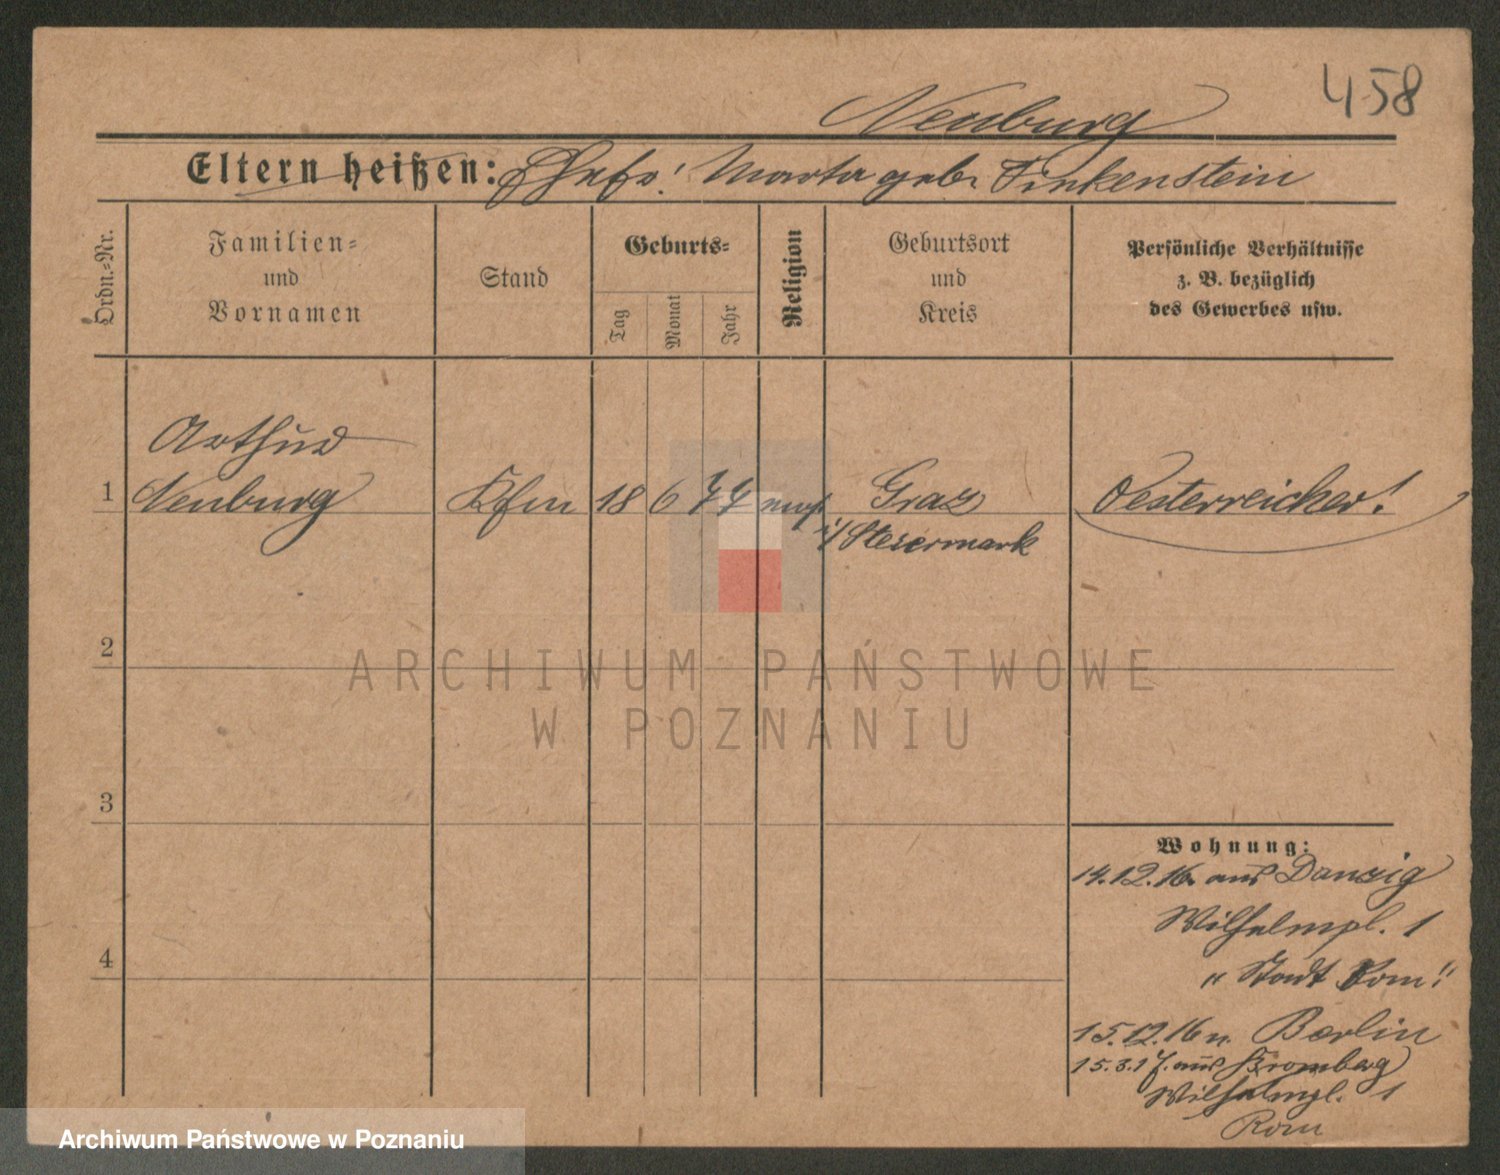 458
Neuburg
Eltern heißen: Ehefr! Marta geb. Finkenstein
Ordn.-Nr.
Familien-
und
Vornamen
Stand
Geburts-
Tag
Monat
Jahr
Religion
Geburtsort
und
Kreis
Persönliche Verhältnisse
z. B. bezüglich
des Gewerbes usw.
Arthur
1 Neuburg Kfm 18 6 77 Graz Oesterreicher!
i/ Steiermark
2
ARCHIWUM PAŃSTWOWE
W POZNANIU
3
Wohnung:
14.12.16. aus Danzig
Wilhelmpl. 1
"Stadt Rom"
4
15.12.16 n. Berlin
15.3.17. aus Bromberg
Wilhelmpl. 1
Rom
Archiwum Państwowe w Poznaniu